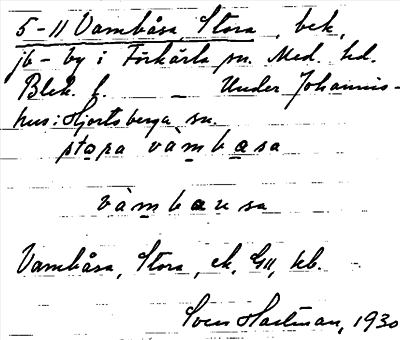 5-11 Vambåsa, Stora, bek,
jb-by i Förkärla sn. Med. hd.
Blek. l. – Under Johannis-
hus: Hjortsberga sn.
stopa vàmbasa
vàmbaresa
Vambåsa, Stora, ek, GII, kb.
Sven Hartman, 1930